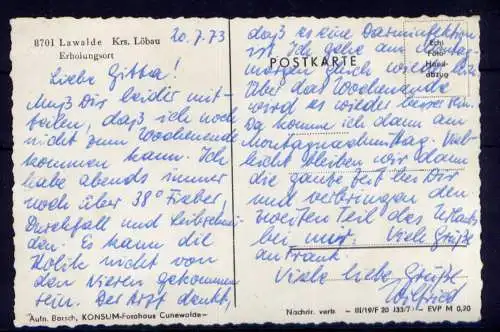 8701 Lawalde Krs. Löbau
Erholungsort
20.7.73
Liebe Gitta!
Muß Dir leider mit-
teilen, daß ich noch
nicht zum Wochenende
kommen kann. Ich
habe abends immer
noch über 38° Fieber,
Durchfall und Leibschmer-
den. Es kann die
Kolik nicht von
den Nieren gekommen
sein. Der Arzt denkt,
Aufn. Borsch, KONSUM-Fotohaus Cunewalde-
daß es eine Darminfektion
ist. Ich gehe am
morgen gleich wieder hin.
Über das Wochenende
wird es wieder besser sein.
Da komme ich dann am
Montagnachmittag. Viel-
leicht bleiben wir dann
die ganze Zeit bei Dir
und verbringen den
zweiten Teil des Urlaubs
bei mir. Viele Grüße
an Frank.
Viele liebe Grüße
Wilfried
POSTKARTE
Echt
Foto
Hand-
abzug
Nachdr. verb. III/19/F 20 133/7 EVP M 0,20